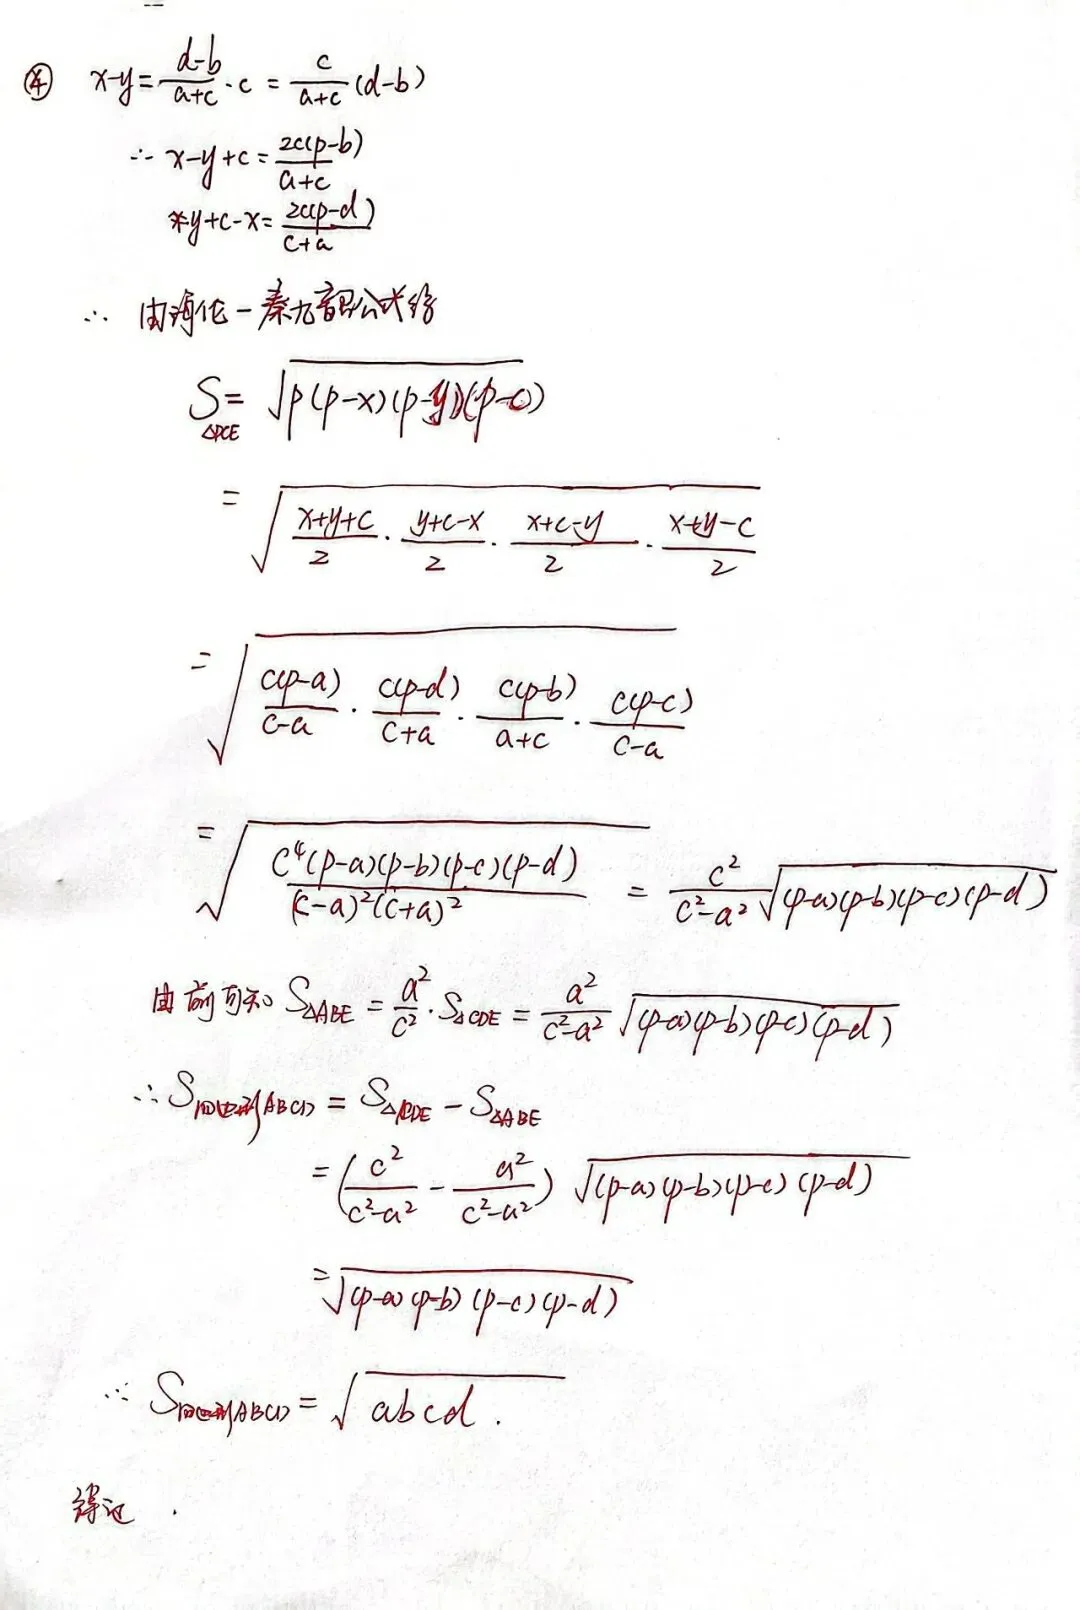 ④ x-y=\frac{d-b}{a+c}·c=\frac{c}{a+c}(d-b)
∴ x-y+c=\frac{2c(p-b)}{a+c}
y+c-x=\frac{2c(p-d)}{c+a}
∴ 由海伦-秦九韶公式得
S_{△DCE}=\sqrt{p(p-x)(p-y)(p-c)}
=\sqrt{\frac{x+y+c}{2}·\frac{y+c-x}{2}·\frac{x+c-y}{2}·\frac{x+y-c}{2}}
=\sqrt{\frac{c(p-a)}{c-a}·\frac{c(p-d)}{c+a}·\frac{c(p-b)}{a+c}·\frac{c(p-c)}{c-a}}
=\sqrt{\frac{c^4(p-a)(p-b)(p-c)(p-d)}{(c-a)^2(c+a)^2}}=\frac{c^2}{c^2-a^2}\sqrt{(p-a)(p-b)(p-c)(p-d)}
由前可知 S_{△ABE}=\frac{a^2}{c^2}·S_{△CDE}=\frac{a^2}{c^2-a^2}\sqrt{(p-a)(p-b)(p-c)(p-d)}
∴ S_{四边形ABCD}=S_{△CDE}-S_{△ABE}
=(\frac{c^2}{c^2-a^2}-\frac{a^2}{c^2-a^2})\sqrt{(p-a)(p-b)(p-c)(p-d)}
=\sqrt{(p-a)(p-b)(p-c)(p-d)}
∴ S_{四边形ABCD}=\sqrt{abcd}.
得证.